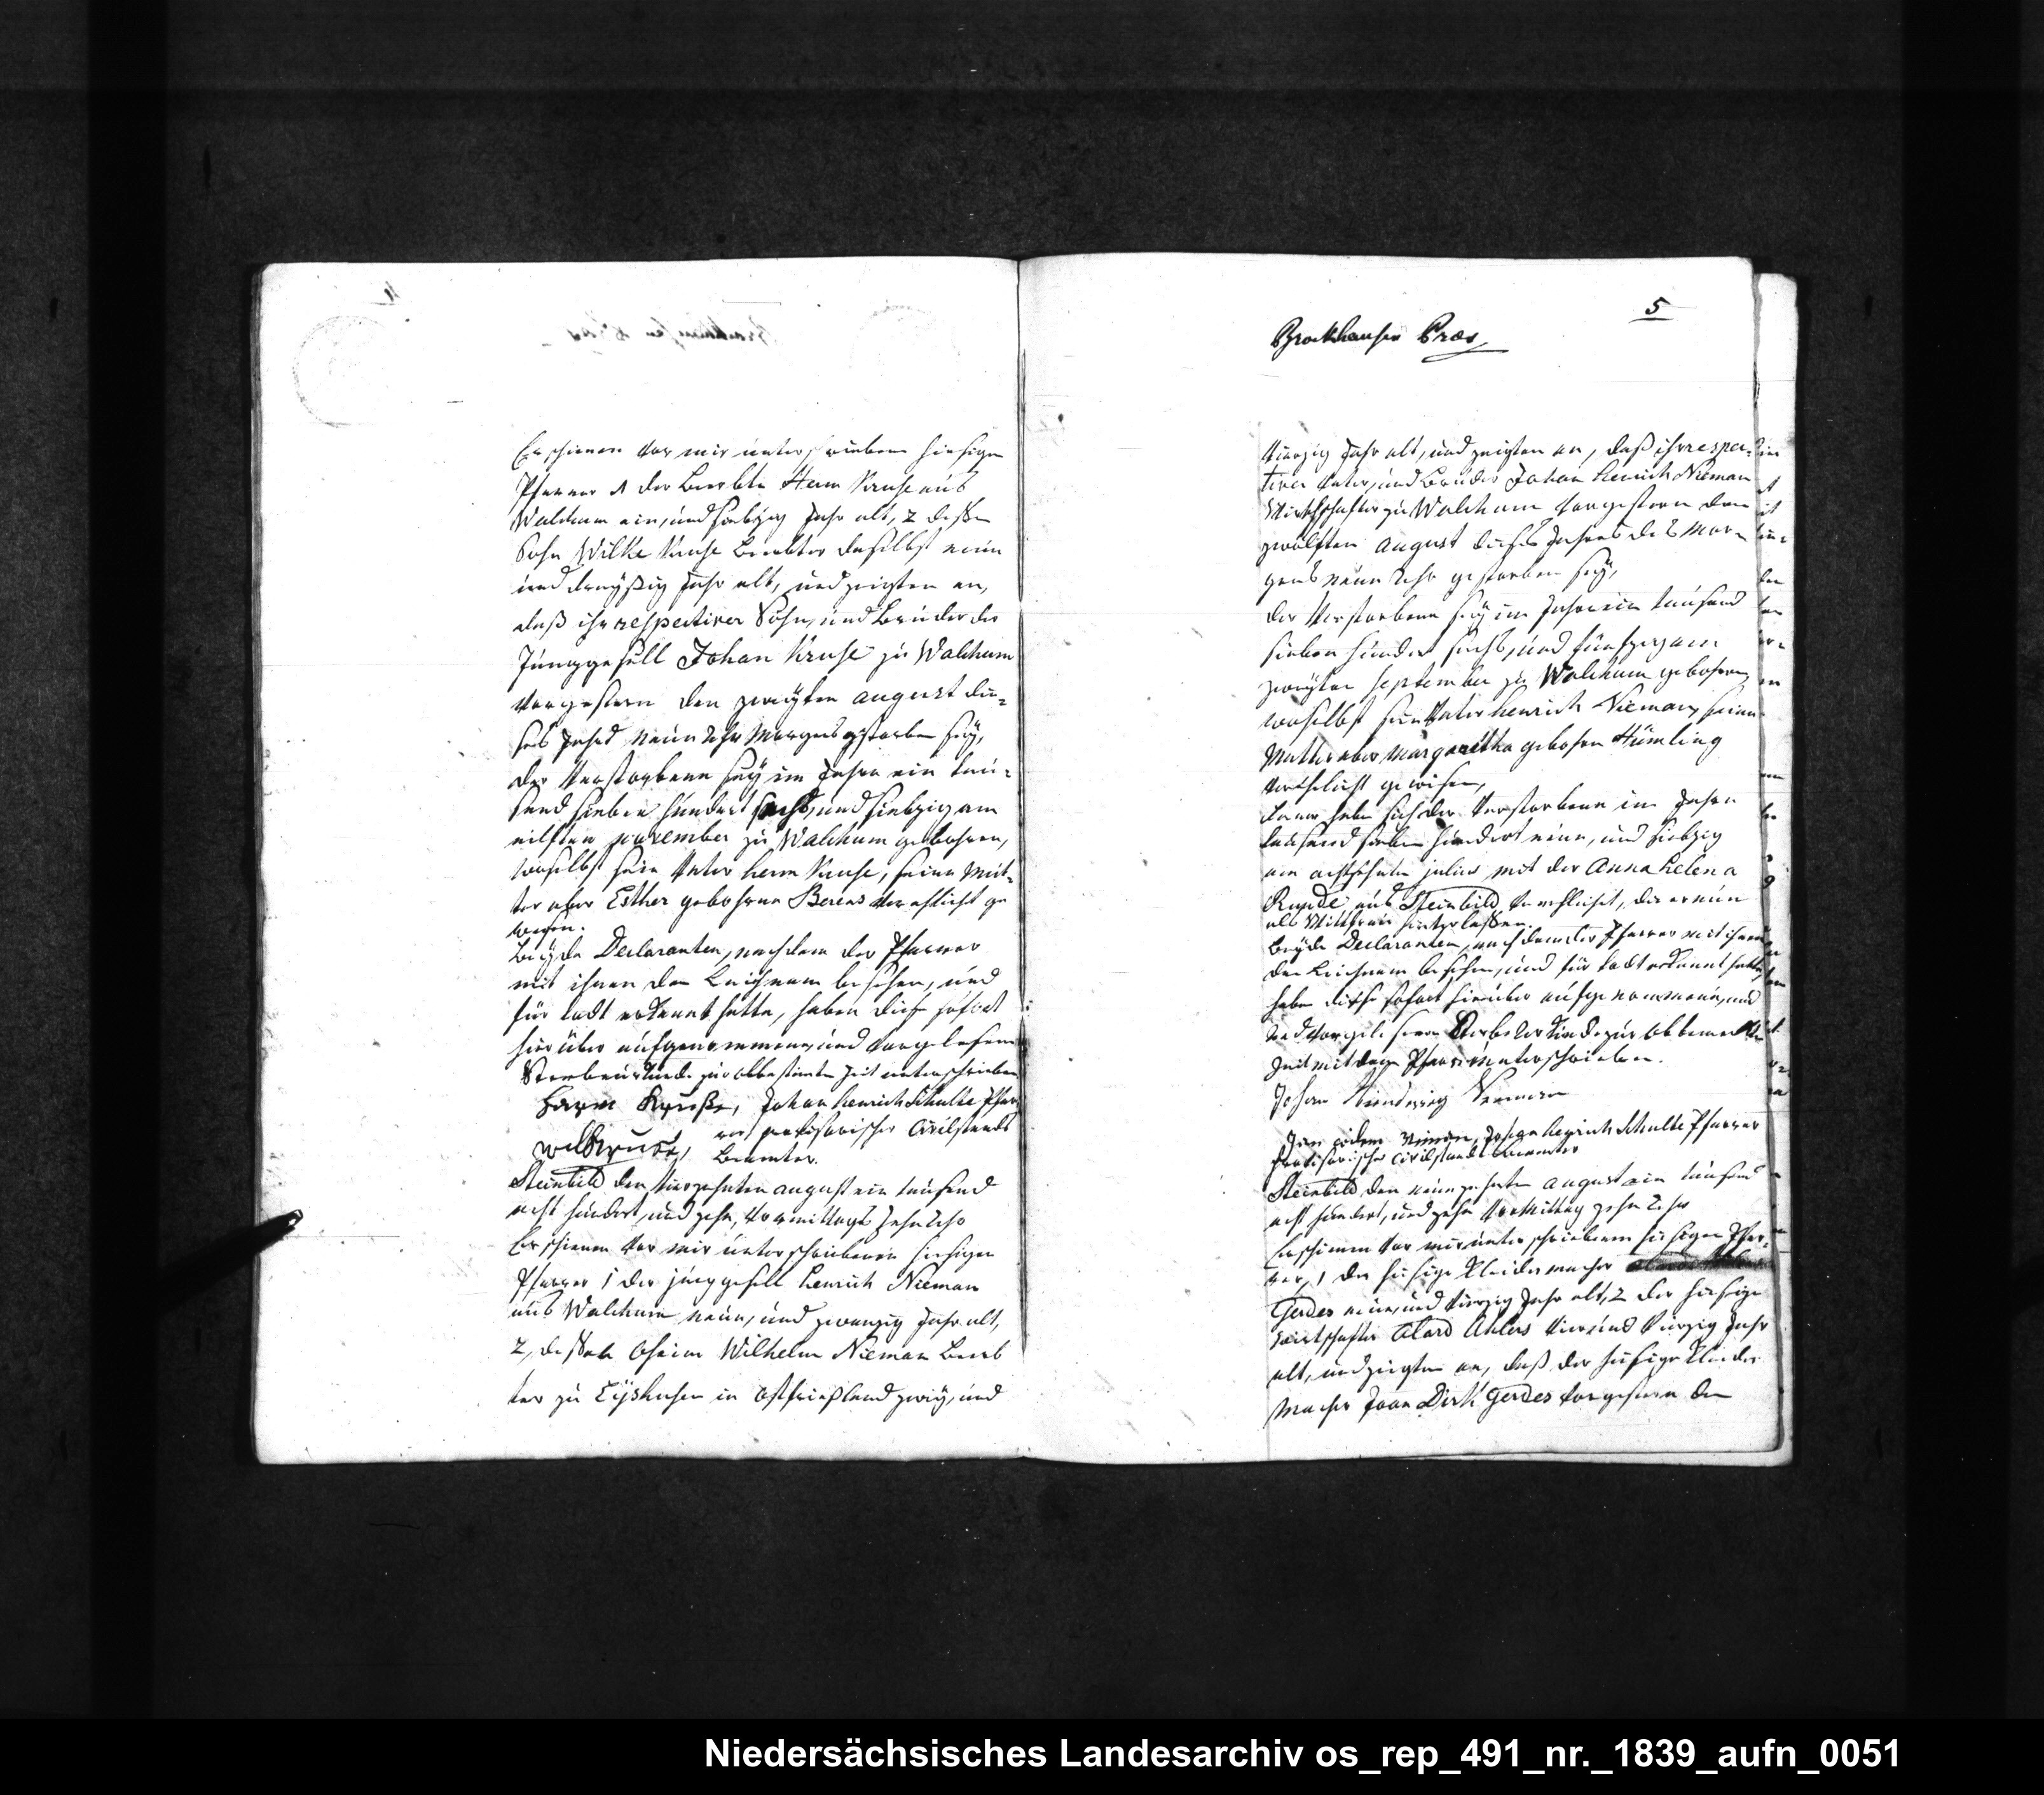 Erschienen vor mir unterschriebenen hiesigen
Pfarrer 1 der Beerbte Herm Kruse aus
Walchum ein, und siebzig Jahr alt, 2 deßen
Sohn Wilke Kruse Beerbter daselbst neun
und dreyßig Jahr alt, und zeigten an,
daß ihr respectiver Sohn, und Bruder der
Junggesell Johan Kruse zu Walchum
vorgestern den zweyten august die-
ses Jahrs neun Uhr Morgens gestorben sey,
der Verstorbene sey im Jahre ein tau-
send sieben hundert sechs, und siebzig am
eilften november zu Walchum gebohren,
woselbst sein Vater Herm Kruse, seine Mut-
ter aber Esther gebohrne Berens verehlicht ge
wesen.
Beyde Declaranten, nachdem der Pfarrer
mit ihnen den Leichnam besehen, und
für todt erkannt hatte, haben diese sofort
hierüber aufgenommene, und vorgelesene
Sterbeurkunde zur obbestimten Zeit unterschrieben
Harm Kruße, Johan Henrich Schulte Pfar
rer provisorischer Civilstands
Beamter.
Steinbild den vierzehnten august ein tausend
acht hundert, und zehn, Vormittags zehn Uhr
Erschienen vor mir unterschriebenen hiesigen
Pfarrer 1 der junggesell Henrich Nieman
aus Walchum neun, und zwanzig Jahr alt,
2, deßen Oheim Wilhelm Nieman Beerb
ter zu in Ostfrießland zwey, und
5
Brockhausen Præs
vierzig Jahr alt, und zeigten an, daß ihr respec-
tiver Vater, und Bruder Johan Henrich Nieman
Wirthschafter zu Walchum vorgestern den
zwölften august dieses Jahres des Mor-
gens neun Uhr gestorben sey,
der Verstorbene sey im Jahre ein tausend
sieben hundert sechs, und fünfzig am
zweyten september zu Walchum gebohren,
woselbst sein Vater Henrich Nieman, seine
Mutter aber Margaretha gebohrn Hümling
verehlicht gewesen,
ferner habe sich der Verstorbene im Jahre
tausend sieben hundert neun, und siebzig
am achtzehnten julius mit der Anna Helena
aus Steinbild verehlicht, die er nun
als Wittfrau hinterlaßen.
Beyde Declaranten, nachdem der Pfarrer mit ihnen
den Leichnam besehen, und für todt erkannt hatte,
haben diese sofort hierüber aufgenommene, und
und vorgelesene Sterbe Urkunde zur obbemerkten
Zeit mit dem Pfarrer unterschrieben.
Johan
Nieman, Johan Henrich Schulte Pfarrer
provisorischer Civilstands Beamter
Steinbild den neunzehnten august ein tausend
acht hundert, und zehn Vormittag zehn Uhr
Erschienen vor mir unterschriebenem hiesigen Pfar-
rer, 1 der hiesige Kleidermacher
Gerdes neun, und vierzig Jahr alt, 2 der hiesige
Wirtschafter Alard Ahlers vier und vierzig Jahr
alt, und zeigten an, daß der hiesige Kleider
macher Joan Dirk Gerdes vorgestern den
Niedersächsisches Landesarchiv os_rep_491_nr._1839_aufn_0051